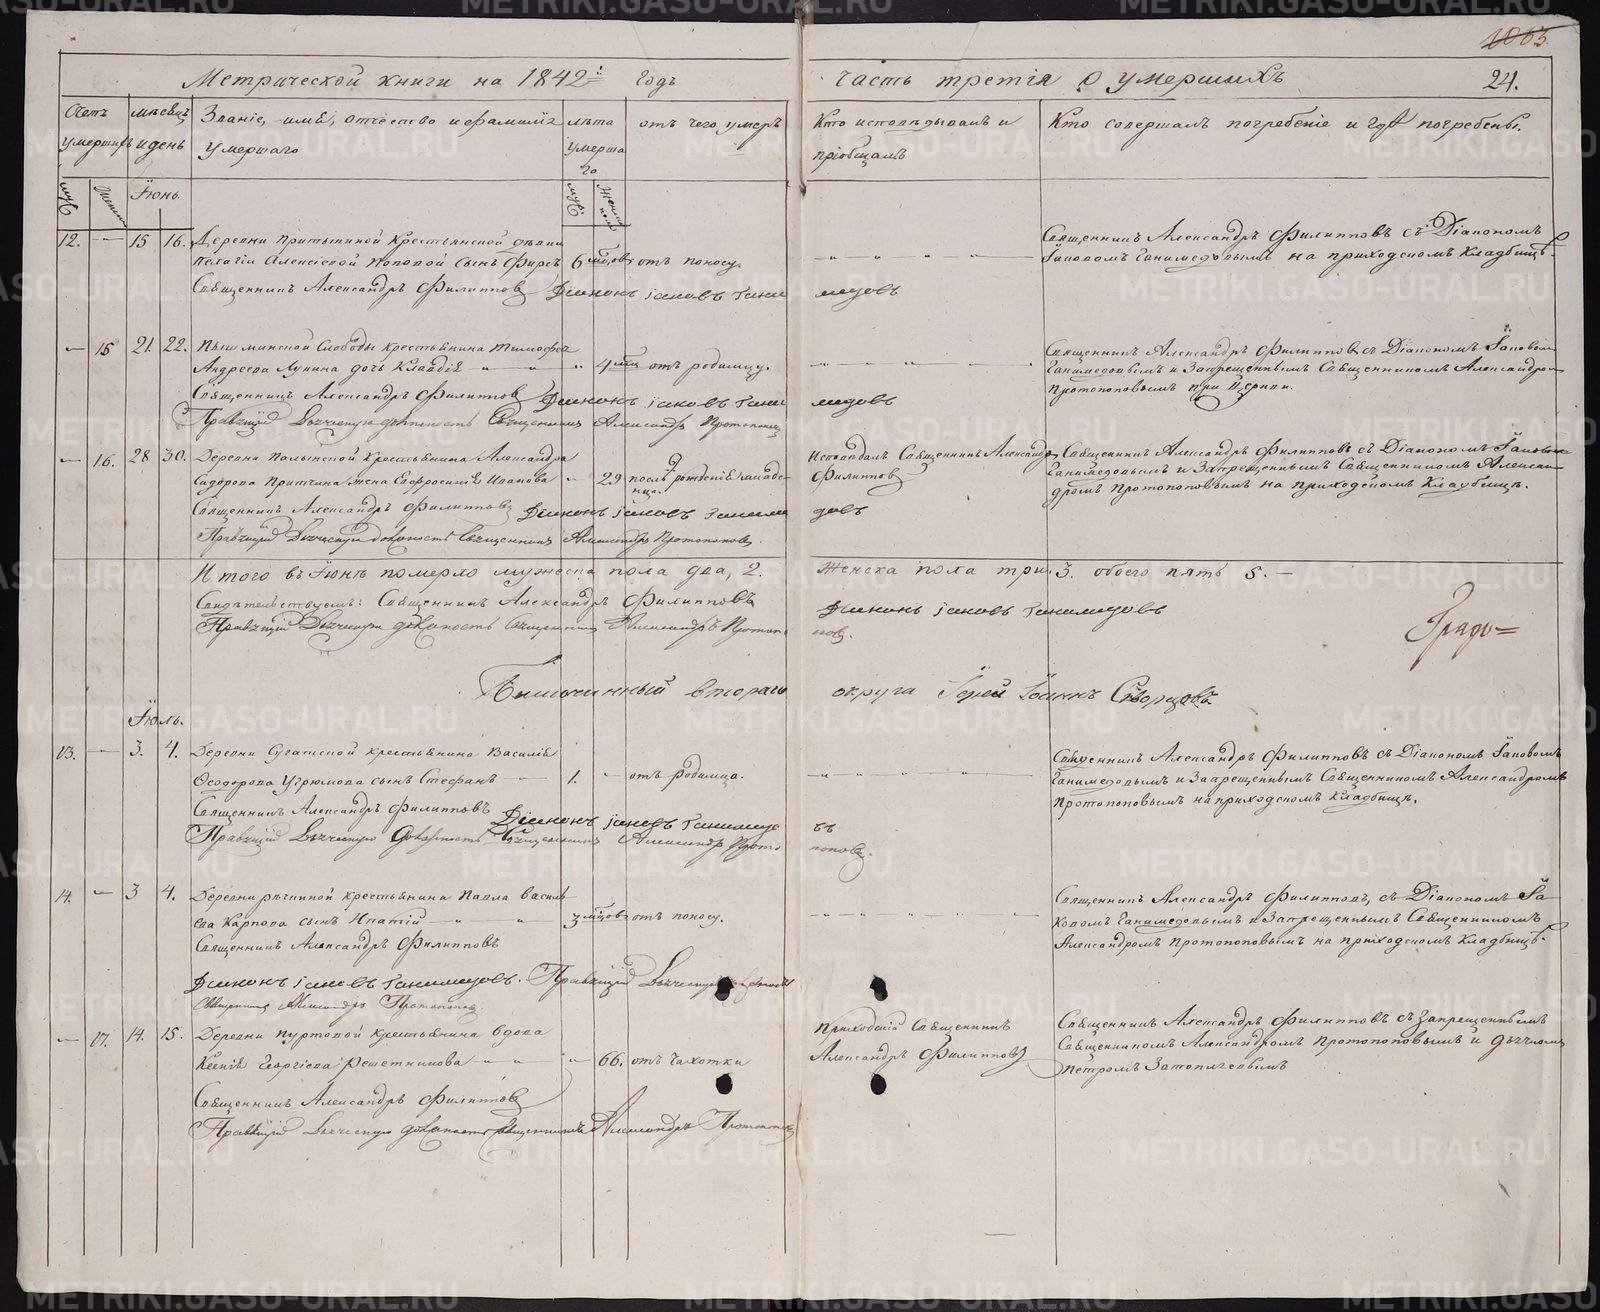 1063
Метрической книги на 1842й годъ часть третія о умершихъ 24.
Счетъ умершихъ
мѣсяцъ и день
Званіе, имя, отчество и фамилія умершаго
лѣта умершаго
отъ чего умеръ
Кто исповѣдывалъ и пріобщалъ
Кто совершалъ погребеніе и гдѣ погребены.
муж женск Іюнь. муж женск пол
12. — 15 16. Деревни Притыкиной крестьянской дѣвки
Пелагіи Алексѣевой Поповой сынъ Фирсъ 6 мѣцовъ отъ поносу.
Священникъ Александръ Филипповъ съ Діакономъ
Іаковомъ Ганимедовымъ на приходскомъ кладбищѣ.
Священникъ Александръ Филипповъ Діаконъ Іаковъ Ганимедовъ
— 15 21. 22. Пышминской Слободы крестьянина Тимофея
Андреева Лупина дочь Клавдія 4 мѣц отъ родимцу.
Священникъ Александръ Филипповъ съ Діакономъ Іаковомъ
Ганимедовымъ и Запрещеннымъ Священникомъ Александромъ
Протопоповымъ при Церкви.
Священникъ Александръ Филипповъ Діаконъ Іаковъ Ганимедовъ
Правящій Дьяческую должность Священникъ Александръ Протопоповъ
— 16. 28 30. Деревни Талынской крестьянина Александра
Сидорова Притчина жена Евфросинія Иванова — 29 послѣ рожденія младенца.
Исповѣдалъ Священникъ Александръ
Филипповъ
Священникъ Александръ Филипповъ съ Діакономъ Іаковомъ
Ганимедовымъ и Запрещеннымъ Священникомъ Александромъ
Протопоповымъ на приходскомъ кладбищѣ.
Священникъ Александръ Филипповъ Діаконъ Іаковъ Ганимедовъ
Правящій Дьяческую должность Священникъ Александръ Протопоповъ.
Итого въ Іюнѣ померло мужеска пола два, 2. женска пола три 3. обоего пять 5. —
Свидѣтельствуемъ: Священникъ Александръ Филипповъ Діаконъ Іаковъ Ганимедовъ
Правящій Дьяческую должность Священникъ Александръ Протопоповъ.
Благочинный втораго округа Іерей Іоаннъ Скворцовъ
Іюль.
13. — 3. 4. Деревни Сугатской крестьянина Василія
Ѳеодорова Угрюмова сынъ Стефанъ 1. — отъ родимца.
Священникъ Александръ Филипповъ съ Діакономъ Іаковомъ
Ганимедовымъ и Запрещеннымъ Священникомъ Александромъ
Протопоповымъ на приходскомъ кладбищѣ.
Священникъ Александръ Филипповъ Діаконъ Іаковъ Ганимедовъ
Правящій Дьяческую должность Священникъ Александръ Протопоповъ.
14. — 3 4. Деревни Речкиной крестьянина Павла Васильева
Карпова сынъ Ипатій 3 мѣцовъ отъ поносу.
Священникъ Александръ Филипповъ, съ Діакономъ Іаковомъ
Ганимедовымъ и Запрещеннымъ Священникомъ
Александромъ Протопоповымъ на приходскомъ кладбищѣ.
Священникъ Александръ Филипповъ
Діаконъ Іаковъ Ганимедовъ. Правящій Дьяческую должность
Священникъ Александръ Протопоповъ.
— 17. 14. 15. Деревни Пуртовой крестьянина вдова
Ксенія Георгіева Решетникова — 66. отъ чахотки
Приходскій Священникъ
Александръ Филипповъ
Священникъ Александръ Филипповъ съ Запрещеннымъ
Священникомъ Александромъ Протопоповымъ и дьячкомъ
Петромъ
Священникъ Александръ Филипповъ
Правящій Дьяческую должность Священникъ Александръ Протопоповъ
METRIKI.GASO-URAL.RU